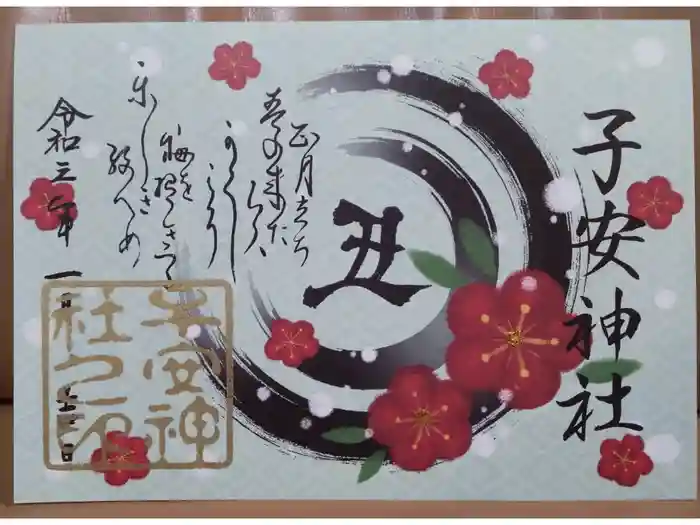 子安神社
丑
正月立ち
春の来たらば
かくし
こそ
梅を招きつつ
楽しき
終へめ
令和三年一月
子安神
社之印